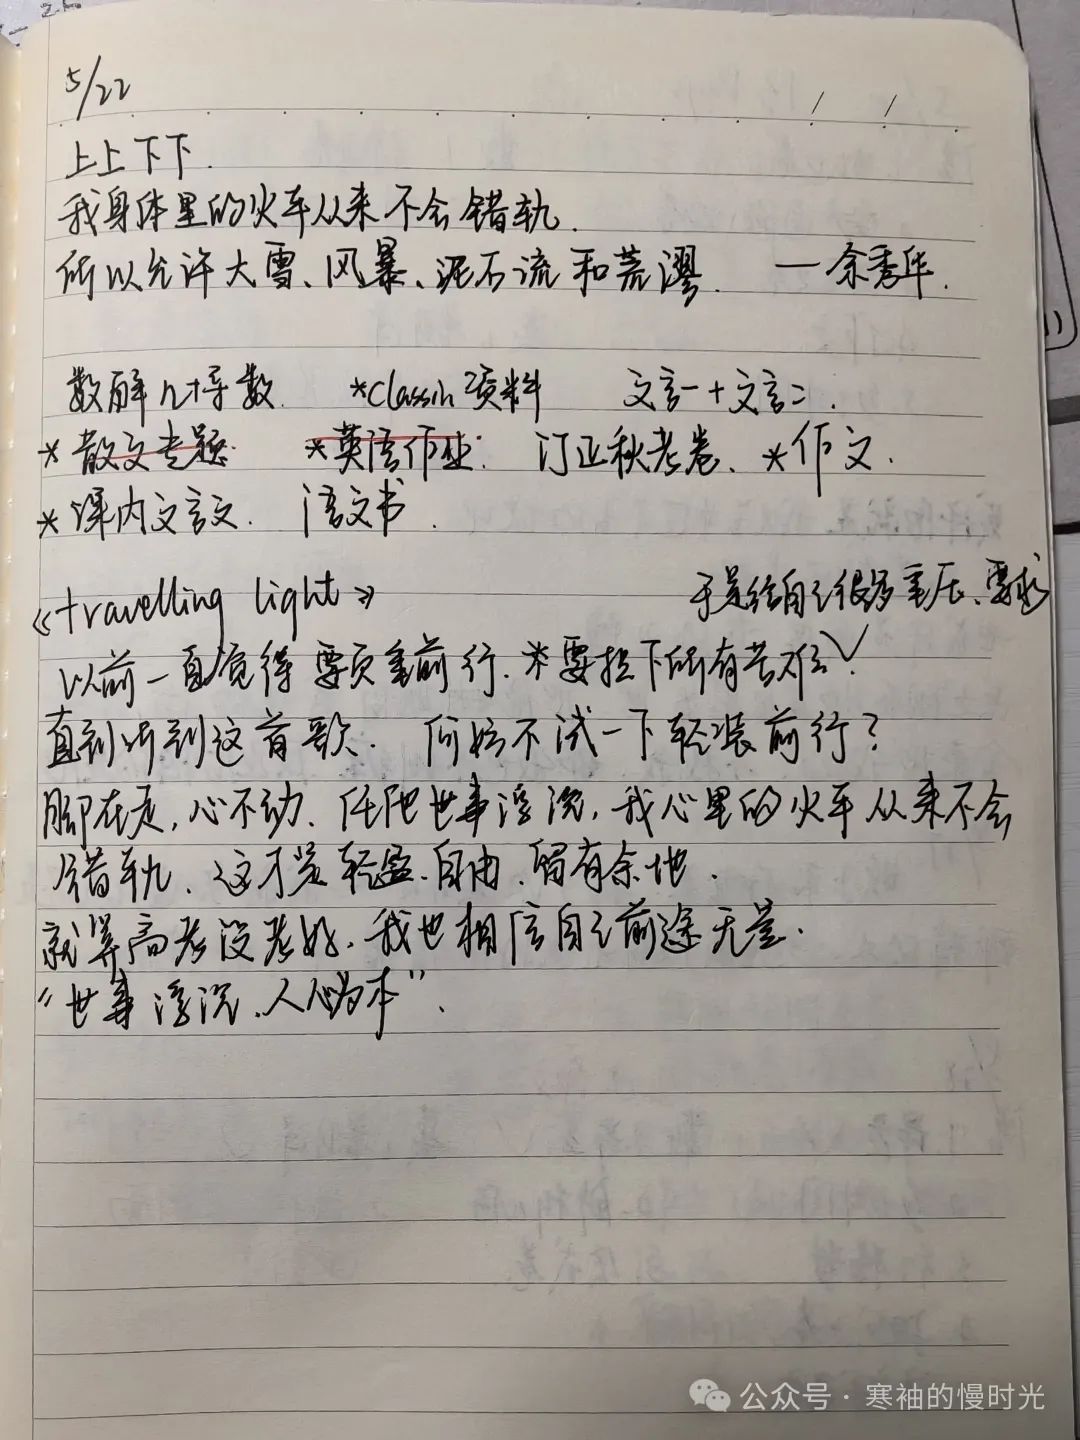 5/22
上上下下.
我身体里的火车从来不会错轨.
所以允许大雪、风暴、泥石流和荒谬. 一余秀华.
数解几+导数. *classin资料 文言一+文言二.
*散文专题 *英语作业: 订正秋考卷、*作文.
*课内文言文. 语文书.
《travelling light》 于是给自己很多重压、要求
以前一直觉得要负重前行.要担下所有苦难
直到听到这首歌. 何妨不试一下轻装前行?
脚在走,心不动. 任他世事浮沉,我心里的火车从来不会
错轨. 这才是轻盈.自由.留有余地.
就算高考没考好,我也相信自己前途无量.
“世事浮沉.人心为本”.
公众号·寒袖的慢时光